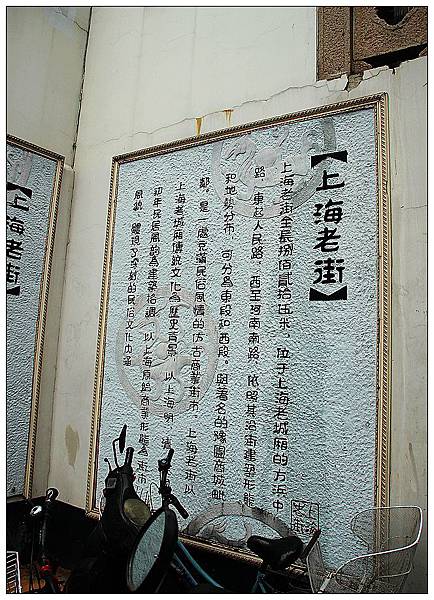 【上海老街】
上海老街全長捌佰貳拾伍米，位于上海老城厢的方浜中
路，東起人民路，西至河南南路，依照其沿街建築形態
和地勢分布，可分為東段和西段。與著名的豫園商城毗
鄰。是一處充滿民俗風情的仿古商業街市，上海老街以
上海老城厢傳統文化為歷史背景，以上海明、清
初年民居風韵為建築格調，以上海原始商業形態為街市
風貌，體現了深刻的民俗文化内涵
【上海老街】